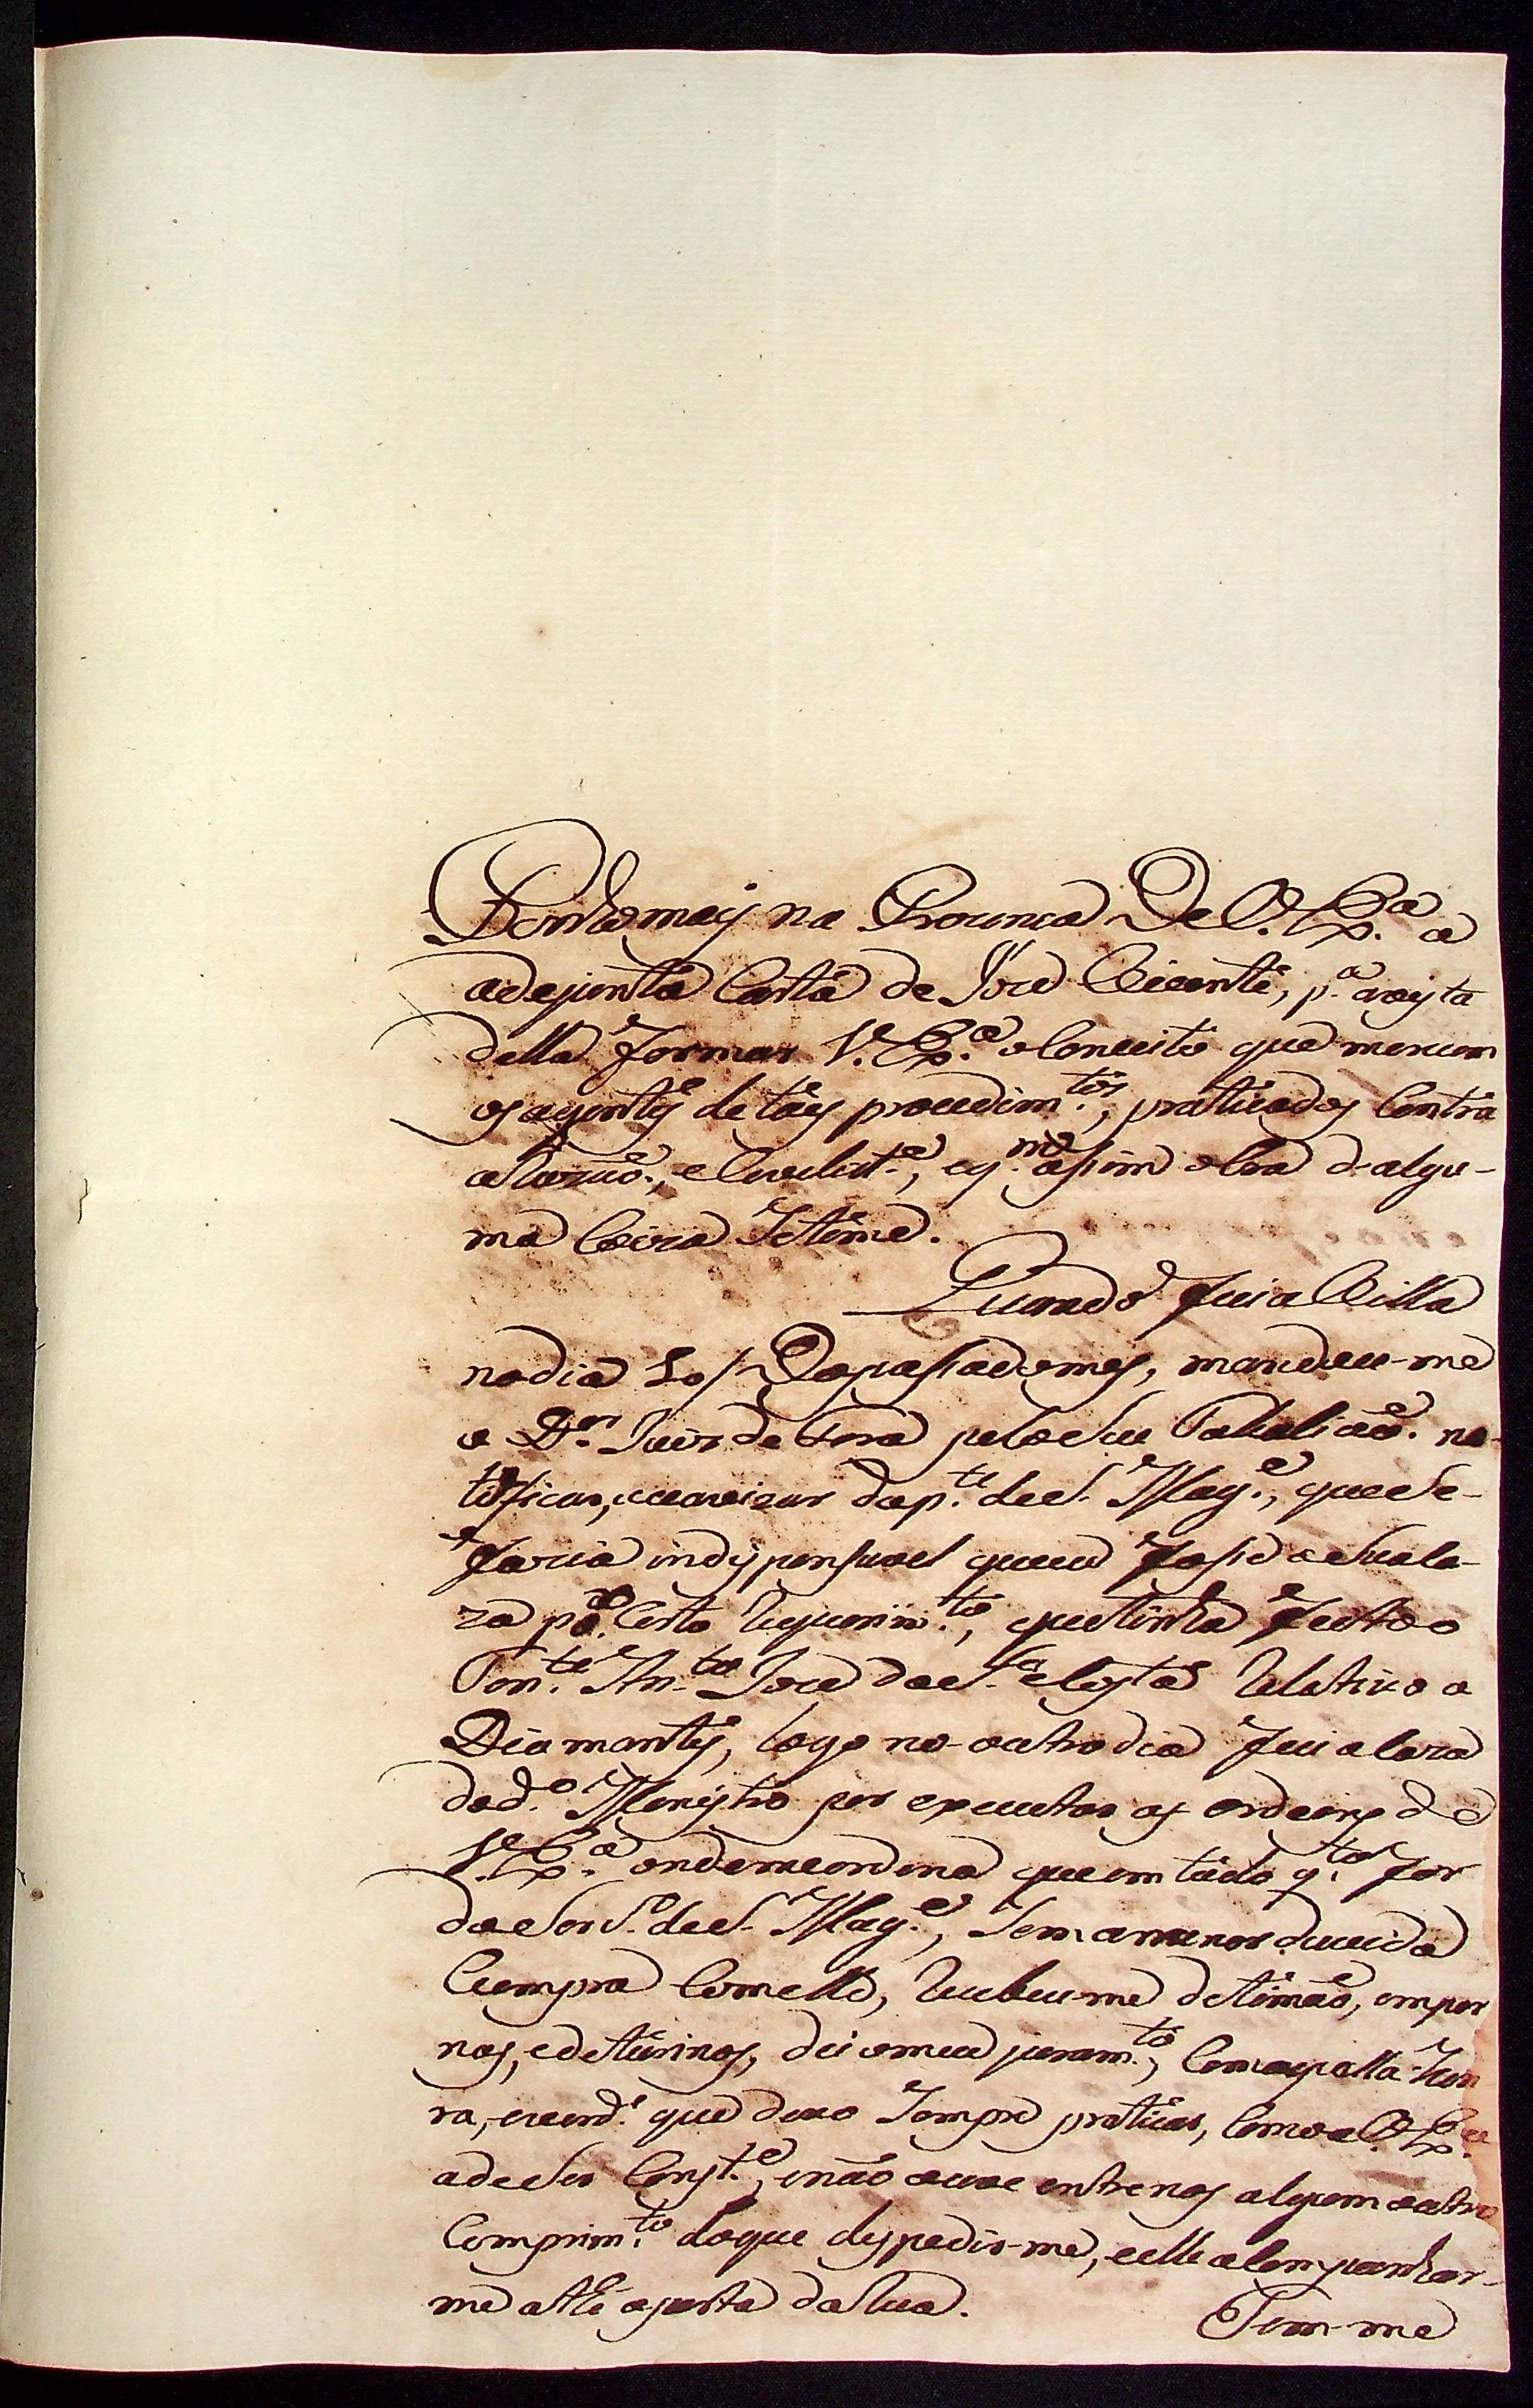 Ponho mais na Prezença De V. Exa. a
adejunta Carta de Joze Vicente, pa. avista
della formar V. Exa. o Conceito que merecem
os agentes de tais procedimtos., praticados Contra
a e q.m asim obra d-algu-
ma Coiza Se teme.
Quando fui a Villa
no dia do pasado mes, mandou-me
o Dor. Juiz de Fora pelo Seu Tabaliaõ. no-
tificar, e avizar da pte. de S. Mage., que Se-
faria indispensavel que eu fose a Sua Ca-
za pa. Certo Requerimto., que tinha feito o
Tente. Anto. Joze da Sa. Costa Relativo a
Diamantes, logo no outro dia fui a Caza
do do. Menistro por executar as ordens de
V. Exa. onde me ordena que em tudo qto. for
do Serco. de S. Mage., Sem a menor duvida
Cumpra Com elle, Recebeu-me de timaõ, em per
nas, e de Xurinos, dei o meu juramto., Com aquella hon
ra, e verde. que devo Sempre praticar, Como a V. Exa.
ade Ser Conste., e naõ ouve entre nos algum outro
Comprimto. do que despedir-me, e elle acompanhar-
me athe aporta da Rua.
Tem-me